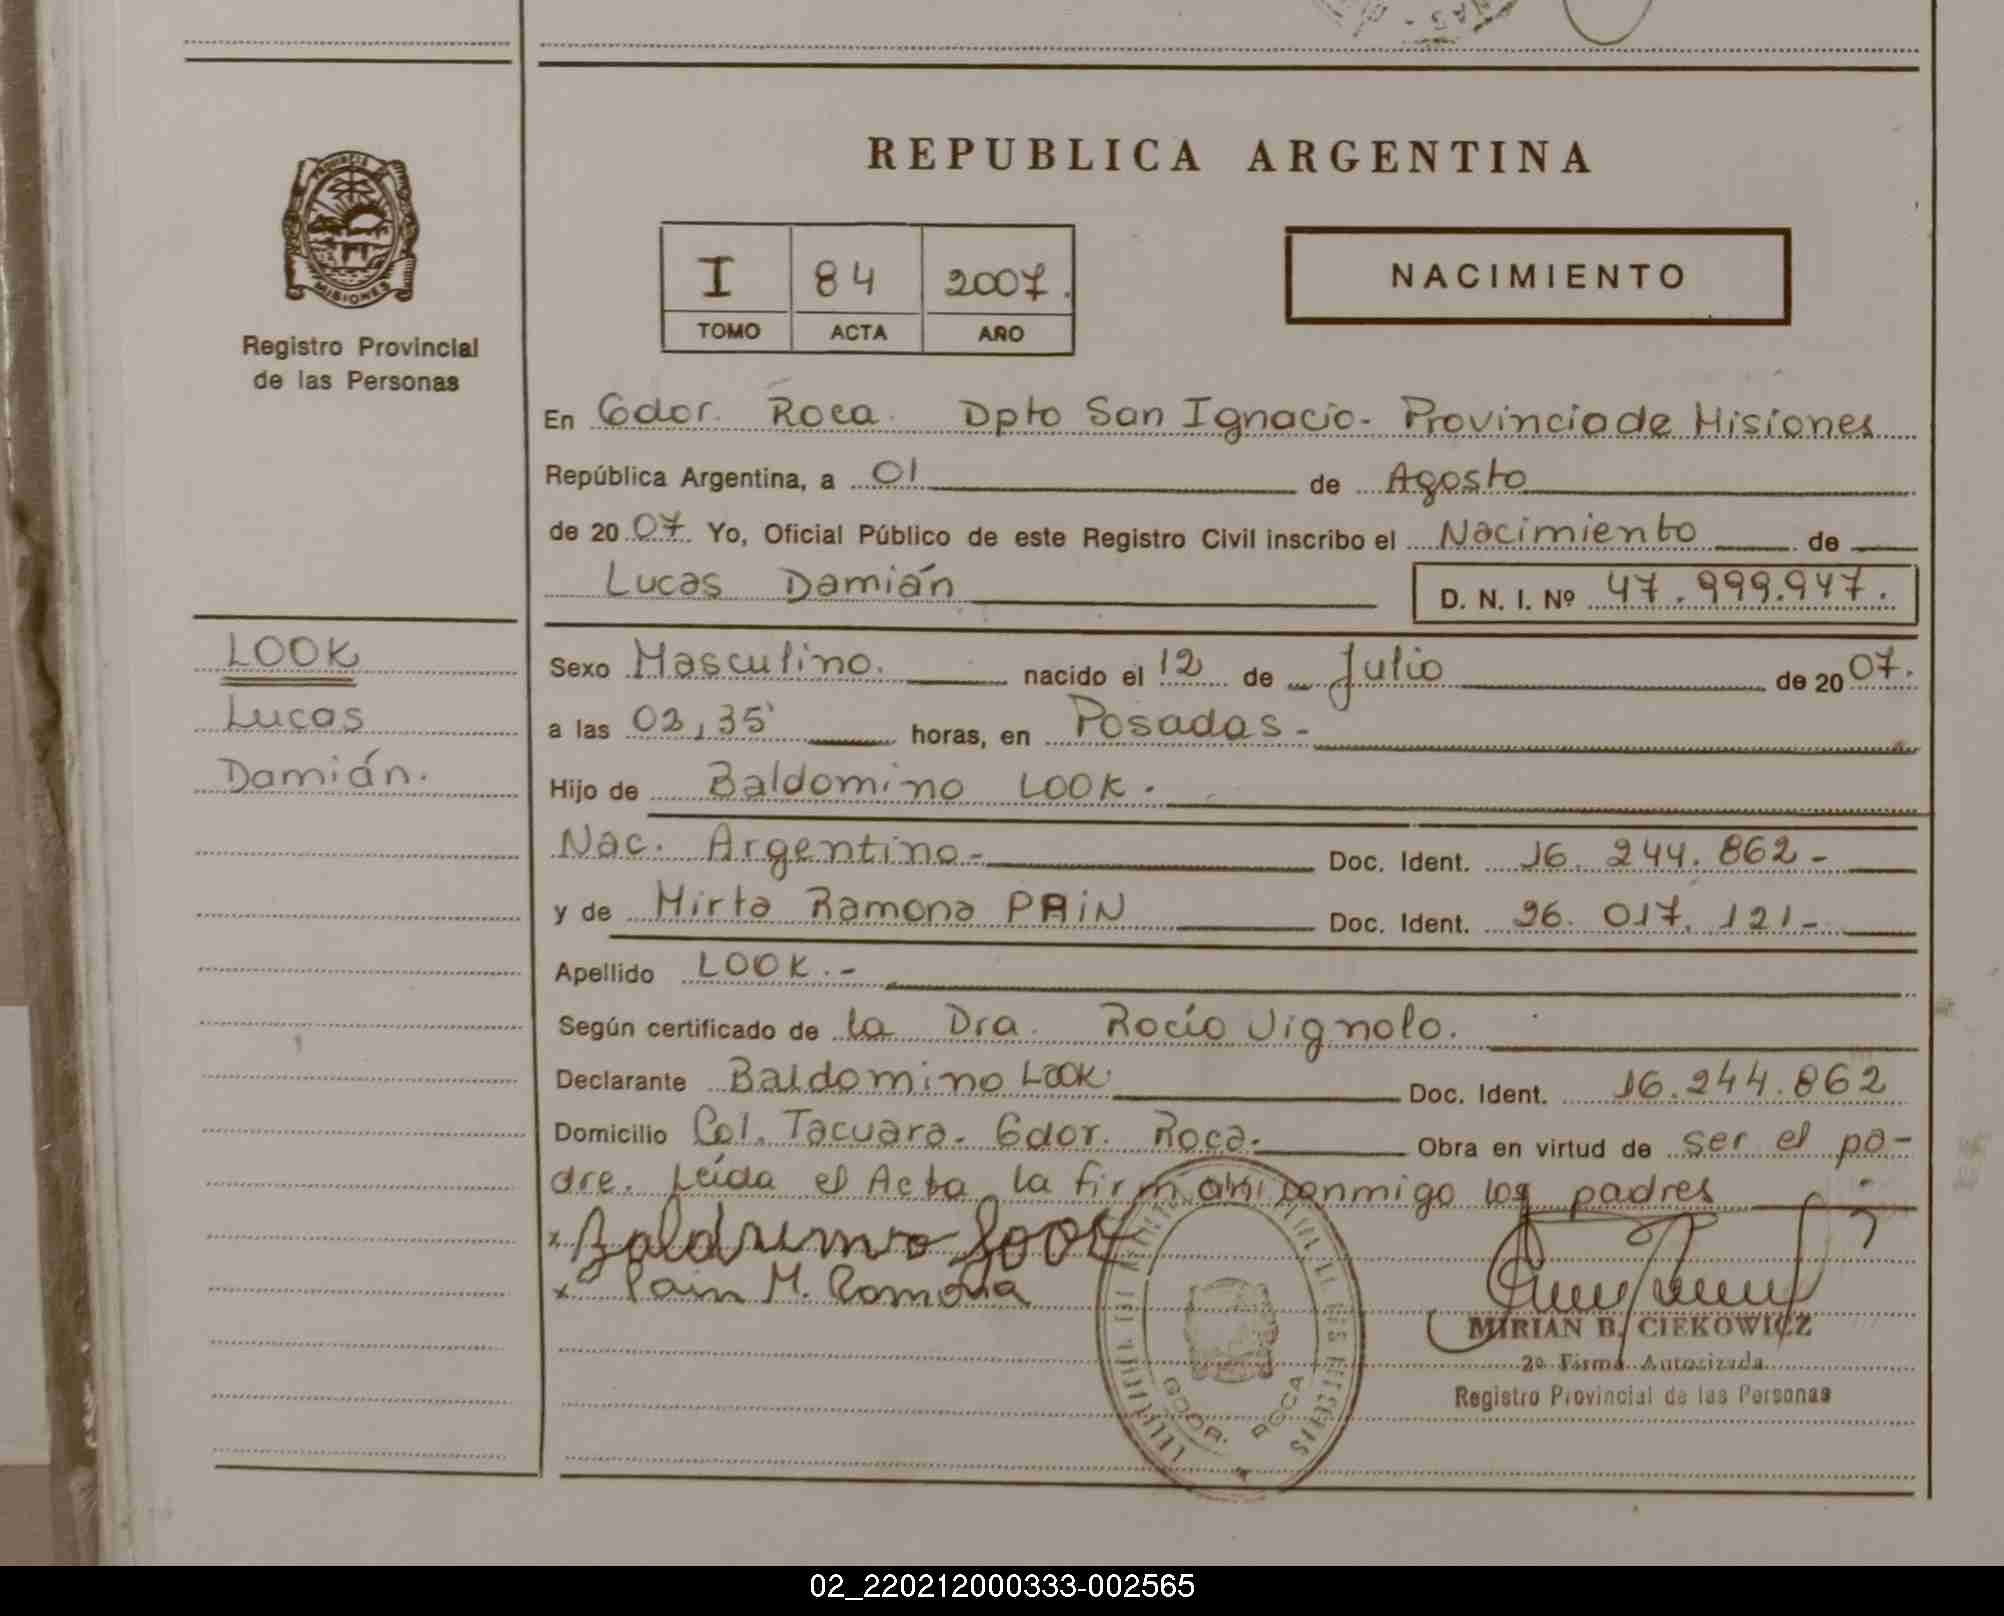 REPUBLICA ARGENTINA
PROVINCIA DE
MISIONES
Registro Provincial
de las Personas
I 84 2007.
TOMO ACTA AÑO
NACIMIENTO
En Gdor. Roca. Dpto San Ignacio- Provincia de Misiones
República Argentina, a 01 de Agosto
de 2007. Yo, Oficial Público de este Registro Civil inscribo el Nacimiento de
Lucas Damián D. N. I. Nº 47.999.947.
LOOK
Lucas
Damián.
Sexo Masculino. nacido el 12 de Julio de 2007.
a las 02,35' horas, en Posadas-
Hijo de Baldomino LOOK.
Nac. Argentino- Doc. Ident. 16.244.862-
y de Mirta Ramona PAIN Doc. Ident. 26.017.121-
Apellido LOOK.-
Según certificado de la Dra. Rocío Vignolo.
Declarante Baldomino Look. Doc. Ident. 16.244.862
Domicilio Col. Tacuara. Gdor. Roca. Obra en virtud de ser el pa-
dre. Leída el Acta la firman conmigo los padres
x Baldomino Look
x Pain M. Ramona
GDOR. ROCA
MIRIAN B. CIEKOWICZ
2º Firma Autorizada
Registro Provincial de las Personas
02_220212000333-002565